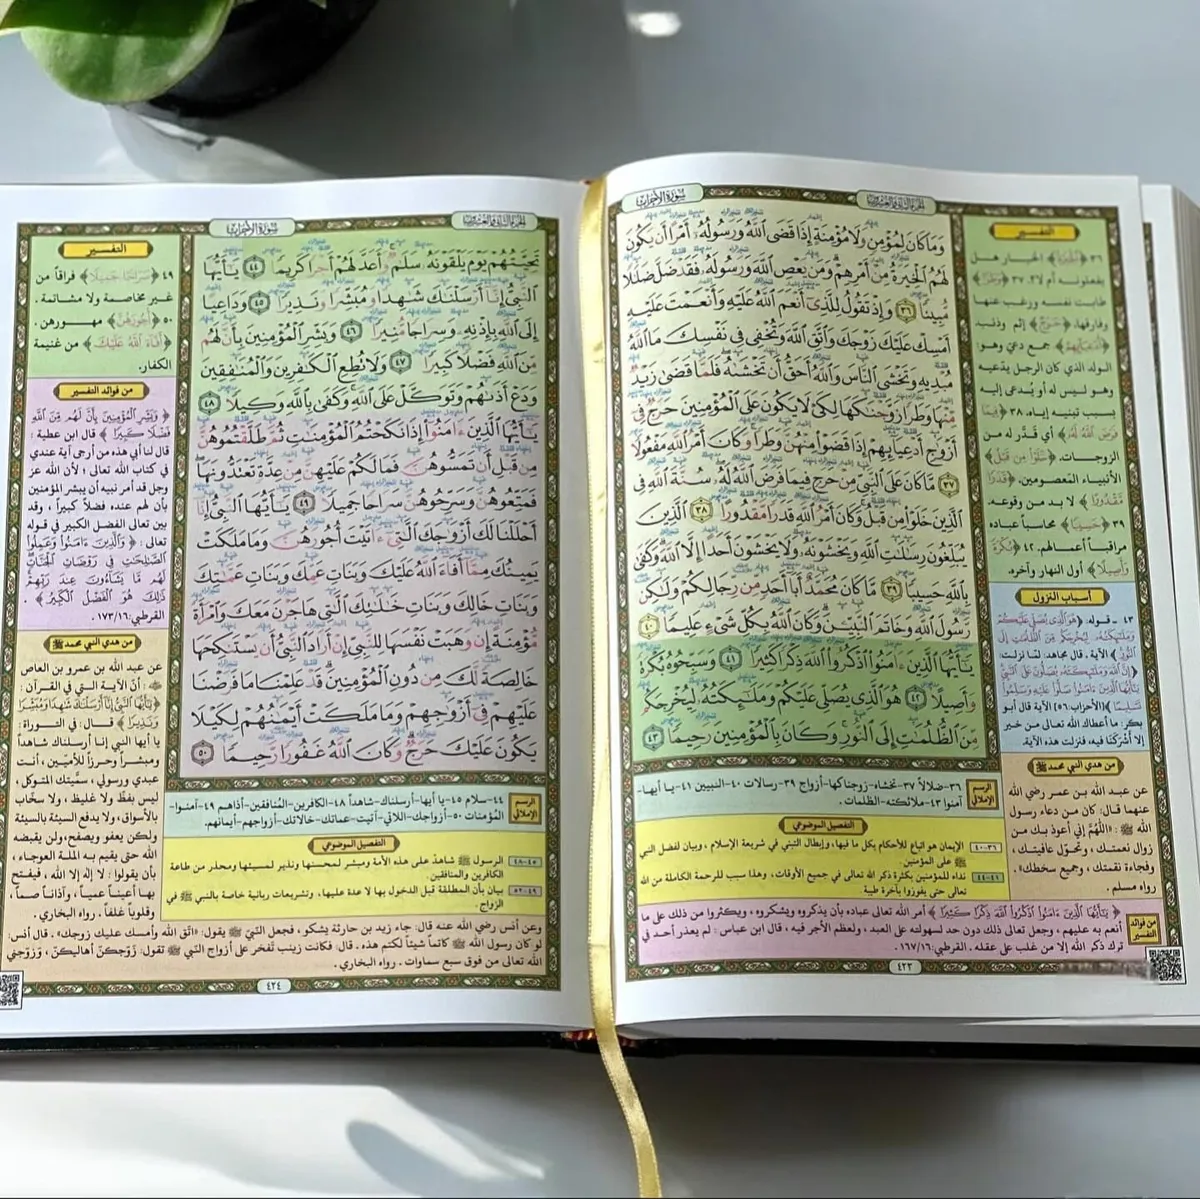 سورة الأحزاب
الجزء الثاني والعشرون
وَمَا كَانَ لِمُؤْمِنٍ وَلَا مُؤْمِنَةٍ إِذَا قَضَى اللَّهُ وَرَسُولُهُ أَمْرًا أَن يَكُونَ
لَهُمُ الْخِيَرَةُ مِنْ أَمْرِهِمْ وَمَن يَعْصِ اللَّهَ وَرَسُولَهُ فَقَدْ ضَلَّ ضَلَٰلًا
مُّبِينًا ٣٦ وَإِذْ تَقُولُ لِلَّذِي أَنْعَمَ اللَّهُ عَلَيْهِ وَأَنْعَمْتَ عَلَيْهِ
أَمْسِكْ عَلَيْكَ زَوْجَكَ وَاتَّقِ اللَّهَ وَتُخْفِي فِي نَفْسِكَ مَا اللَّهُ
مُبْدِيهِ وَتَخْشَى النَّاسَ وَاللَّهُ أَحَقُّ أَن تَخْشَىٰهُ فَلَمَّا قَضَىٰ زَيْدٌ
مِّنْهَا وَطَرًا زَوَّجْنَٰكَهَا لِكَيْ لَا يَكُونَ عَلَى الْمُؤْمِنِينَ حَرَجٌ فِي
أَزْوَٰجِ أَدْعِيَائِهِمْ إِذَا قَضَوْا مِنْهُنَّ وَطَرًا وَكَانَ أَمْرُ اللَّهِ مَفْعُولًا
٣٧ مَّا كَانَ عَلَى النَّبِيِّ مِنْ حَرَجٍ فِيمَا فَرَضَ اللَّهُ لَهُ سُنَّةَ اللَّهِ فِي
الَّذِينَ خَلَوْا مِن قَبْلُ وَكَانَ أَمْرُ اللَّهِ قَدَرًا مَّقْدُورًا ٣٨ الَّذِينَ
يُبَلِّغُونَ رِسَٰلَٰتِ اللَّهِ وَيَخْشَوْنَهُ وَلَا يَخْشَوْنَ أَحَدًا إِلَّا اللَّهَ وَكَفَىٰ
بِاللَّهِ حَسِيبًا ٣٩ مَّا كَانَ مُحَمَّدٌ أَبَا أَحَدٍ مِّن رِّجَالِكُمْ وَلَٰكِن
رَّسُولَ اللَّهِ وَخَاتَمَ النَّبِيِّينَ وَكَانَ اللَّهُ بِكُلِّ شَيْءٍ عَلِيمًا ٤٠
يَٰأَيُّهَا الَّذِينَ ءَامَنُوا اذْكُرُوا اللَّهَ ذِكْرًا كَثِيرًا ٤١ وَسَبِّحُوهُ بُكْرَةً
وَأَصِيلًا ٤٢ هُوَ الَّذِي يُصَلِّي عَلَيْكُمْ وَمَلَٰئِكَتُهُ لِيُخْرِجَكُم
مِّنَ الظُّلُمَٰتِ إِلَى النُّورِ وَكَانَ بِالْمُؤْمِنِينَ رَحِيمًا ٤٣
التفسير
٣٦ ﴿الْخِيَرَةُ﴾ الخيار هل
يفعلونه أم لا. ٣٧ ﴿وَطَرًا﴾
طابت نفسه ورغب عنها
وفارقها. ﴿حَرَجٌ﴾ إثم وذنب.
﴿أَدْعِيَائِهِمْ﴾ جمع دعيّ وهو
الولد الذي كان الرجل يدّعيه
وهو ليس له أو يُدعى إليه
بسبب تبنيه إياه. ٣٨ ﴿فِيمَا
فَرَضَ اللَّهُ لَهُ﴾ أي قدّر له من
الزوجات. ﴿خَلَوْا مِن قَبْلُ﴾
الأنبياء المعصومين. ﴿قَدَرًا
مَّقْدُورًا﴾ لا بد من وقوعه.
٣٩ ﴿حَسِيبًا﴾ محاسباً عباده
مراقباً أعمالهم. ٤٢ ﴿بُكْرَةً
وَأَصِيلًا﴾ أول النهار وآخره.
أسباب النزول
٤٣ - قوله: ﴿هُوَ الَّذِي يُصَلِّي عَلَيْكُمْ
وَمَلَٰئِكَتُهُ لِيُخْرِجَكُم مِّنَ الظُّلُمَٰتِ إِلَى
النُّورِ﴾ الآية. قال مجاهد: لمّا نزلت:
﴿إِنَّ اللَّهَ وَمَلَٰئِكَتَهُ يُصَلُّونَ عَلَى النَّبِيِّ
يَٰأَيُّهَا الَّذِينَ ءَامَنُوا صَلُّوا عَلَيْهِ وَسَلِّمُوا
تَسْلِيمًا﴾ [الأحزاب:٥٦] الآية قال أبو
بكر: ما أعطاك الله تعالى من خير
إلا أَشْرَكْنَا فيه، فنزلت هذه الآية.
من هدي النبي محمد ﷺ
عن عبد الله بن عمر رضي الله
عنهما قال: كان من دعاء رسول
الله ﷺ: «اللَّهُمَّ إنّي أعوذ بك من
زوال نعمتك، وتحوّل عافيتك،
وفجاءة نقمتك، وجميع سخطك».
رواه مسلم.
الرسم الإملائي
٣٦-ضلالاً ٣٧-تخشاه- زوجناكها-أزواج ٣٩-رسالات ٤٠-النبيين ٤١-يا أيها-
آمنوا ٤٣-ملائكته-الظلمات.
التفصيل الموضوعي
٣٦-٤٠ الإيمان هو اتباع للأحكام بكل ما فيها، وإبطال التبني في شريعة الإسلام، وبيان لفضل النبي
ﷺ على المؤمنين.
٤١-٤٤ نداء للمؤمنين بكثرة ذكر الله تعالى في جميع الأوقات، وهذا سبب للرحمة الكاملة من الله
تعالى حتى يفوزوا بآخرة طيبة.
من فوائد التفسير
﴿يَٰأَيُّهَا الَّذِينَ ءَامَنُوا اذْكُرُوا اللَّهَ ذِكْرًا كَثِيرًا﴾ أمر الله تعالى عباده بأن يذكروه ويشكروه، ويكثروا من ذلك على ما
أنعم به عليهم، وجعل تعالى ذلك دون حد لسهولته على العبد، ولعظم الأجر فيه، قال ابن عباس: لم يعذر أحد في
ترك ذكر الله إلا من غلب على عقله. القرطبي:١٦٧/١٦.
٤٢٣
سورة الأحزاب
الجزء الثاني والعشرون
تَحِيَّتُهُمْ يَوْمَ يَلْقَوْنَهُ سَلَٰمٌ وَأَعَدَّ لَهُمْ أَجْرًا كَرِيمًا ٤٤ يَٰأَيُّهَا
النَّبِيُّ إِنَّا أَرْسَلْنَٰكَ شَٰهِدًا وَمُبَشِّرًا وَنَذِيرًا ٤٥ وَدَاعِيًا
إِلَى اللَّهِ بِإِذْنِهِ وَسِرَاجًا مُّنِيرًا ٤٦ وَبَشِّرِ الْمُؤْمِنِينَ بِأَنَّ لَهُم
مِّنَ اللَّهِ فَضْلًا كَبِيرًا ٤٧ وَلَا تُطِعِ الْكَٰفِرِينَ وَالْمُنَٰفِقِينَ
وَدَعْ أَذَىٰهُمْ وَتَوَكَّلْ عَلَى اللَّهِ وَكَفَىٰ بِاللَّهِ وَكِيلًا ٤٨
يَٰأَيُّهَا الَّذِينَ ءَامَنُوا إِذَا نَكَحْتُمُ الْمُؤْمِنَٰتِ ثُمَّ طَلَّقْتُمُوهُنَّ
مِن قَبْلِ أَن تَمَسُّوهُنَّ فَمَا لَكُمْ عَلَيْهِنَّ مِنْ عِدَّةٍ تَعْتَدُّونَهَا
فَمَتِّعُوهُنَّ وَسَرِّحُوهُنَّ سَرَاحًا جَمِيلًا ٤٩ يَٰأَيُّهَا النَّبِيُّ إِنَّا
أَحْلَلْنَا لَكَ أَزْوَٰجَكَ الَّٰتِي ءَاتَيْتَ أُجُورَهُنَّ وَمَا مَلَكَتْ
يَمِينُكَ مِمَّا أَفَاءَ اللَّهُ عَلَيْكَ وَبَنَاتِ عَمِّكَ وَبَنَاتِ عَمَّٰتِكَ
وَبَنَاتِ خَالِكَ وَبَنَاتِ خَٰلَٰتِكَ الَّٰتِي هَاجَرْنَ مَعَكَ وَامْرَأَةً
مُّؤْمِنَةً إِن وَهَبَتْ نَفْسَهَا لِلنَّبِيِّ إِنْ أَرَادَ النَّبِيُّ أَن يَسْتَنكِحَهَا
خَالِصَةً لَّكَ مِن دُونِ الْمُؤْمِنِينَ قَدْ عَلِمْنَا مَا فَرَضْنَا
عَلَيْهِمْ فِي أَزْوَٰجِهِمْ وَمَا مَلَكَتْ أَيْمَٰنُهُمْ لِكَيْلَا
يَكُونَ عَلَيْكَ حَرَجٌ وَكَانَ اللَّهُ غَفُورًا رَّحِيمًا ٥٠
التفسير
٤٩ ﴿سَرَاحًا جَمِيلًا﴾ فراقاً من
غير مخاصمة ولا مشاتمة.
٥٠ ﴿أُجُورَهُنَّ﴾ مهورهن.
﴿أَفَاءَ اللَّهُ عَلَيْكَ﴾ من غنيمة
الكفار.
من فوائد التفسير
﴿وَبَشِّرِ الْمُؤْمِنِينَ بِأَنَّ لَهُم مِّنَ اللَّهِ
فَضْلًا كَبِيرًا﴾ قال ابن عطية:
قال لنا أبي هذه من أرجى آية عندي
في كتاب الله تعالى؛ لأن الله عز
وجل قد أمر نبيه أن يبشر المؤمنين
بأن لهم عنده فضلاً كبيراً، وقد
بين تعالى الفضل الكبير في قوله
تعالى: ﴿وَالَّذِينَ ءَامَنُوا وَعَمِلُوا
الصَّٰلِحَٰتِ فِي رَوْضَاتِ الْجَنَّاتِ
لَهُم مَّا يَشَاءُونَ عِندَ رَبِّهِمْ
ذَٰلِكَ هُوَ الْفَضْلُ الْكَبِيرُ﴾.
القرطبي:١٧٣/١٦.
من هدي النبي محمد ﷺ
عن عبد الله بن عمرو بن العاص
: أنّ الآية التي في القرآن:
﴿يَٰأَيُّهَا النَّبِيُّ إِنَّا أَرْسَلْنَٰكَ شَٰهِدًا وَمُبَشِّرًا
وَنَذِيرًا﴾ قال: في التوراة:
يا أيها النبي إنا أرسلناك شاهداً
ومبشراً وحرزاً للأميين، أنت
عبدي ورسولي، سمّيتك المتوكل،
ليس بفظّ ولا غليظ، ولا سخّاب
بالأسواق، ولا يدفع السيئة بالسيئة
ولكن يعفو ويصفح، ولن يقبضه
الله حتى يقيم به الملة العوجاء،
بأن يقولوا: لا إله إلا الله، فيفتح
بها أعيناً عمياً، وآذاناً صماً،
وقلوباً غلفاً. رواه البخاري.
الرسم الإملائي
٤٤-سلام ٤٥-يا أيها-أرسلناك-شاهداً ٤٨-الكافرين-المنافقين-أذاهم ٤٩-آمنوا-
المؤمنات ٥٠-أزواجك-اللاتي-آتيت-عماتك-خالاتك-أزواجهم-أيمانهم.
التفصيل الموضوعي
٤٥-٤٨ الرسول ﷺ شاهدٌ على هذه الأمة ومبشر لمحسنها ونذير لمسيئها ومحذر من طاعة
الكافرين والمنافقين.
٤٩-٥٢ بيان بأن المطلقة قبل الدخول بها لا عدة عليها، وتشريعات ربانية خاصة بالنبي ﷺ في
الزواج.
وعن أنس رضي الله عنه قال: جاء زيد بن حارثة يشكو، فجعل النبيّ ﷺ يقول: «اتّق الله وأمسك عليك زوجك». قال أنس:
لو كان رسول الله ﷺ كاتماً شيئاً لكتم هذه. قال: فكانت زينب تفخر على أزواج النبي ﷺ تقول: زوّجكنّ أهاليكنّ، وزوّجني
الله تعالى من فوق سبع سماوات. رواه البخاري.
٤٢٤